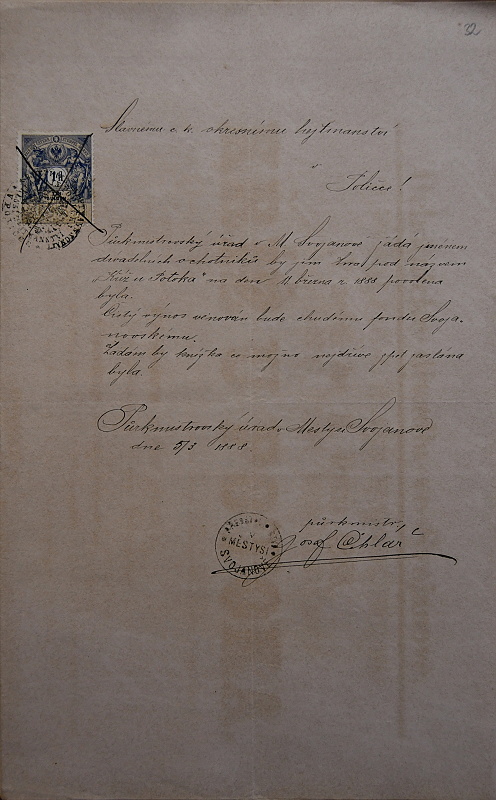 32
Slavnému c. k. okresnímu hejtmanství
v
Poličce!
Purkmistrovský úřad v M. Svojanově žádá jménem
divadelních ochotníků by jim hra pod názvem
„Kříž u Potoka" na den 11 března r. 1888 povolena
byla.
Čistý výnos venován bude chudému fondu Svoja-
novskému.
Žádám by knížka co možno nejdříve zaslána
byla.
Purkmistrovský úřad v Mestysi Svojanově
dne 5/3 1888.
purkmistr,
Josef Chlád
MĚSTYSI
SVOJANOVĚ